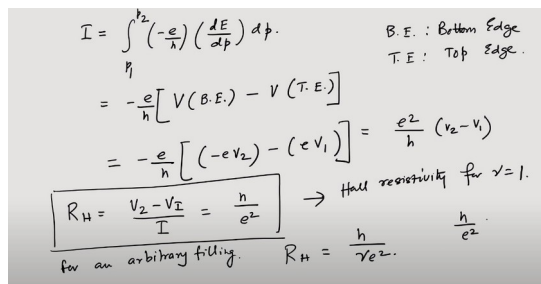 I = ∫_{p_1}^{p_2} (-e/h) (dE/dp) dp.
B.E. : Bottom Edge
T.E : Top Edge.
= -e/h [ V(B.E.) - V(T.E.) ]
= -e/h [ (-eV_2) - (eV_1) ] = e^2/h (V_2 - V_1)
R_H = (V_2 - V_I)/I = h/e^2 → Hall resistivity for ν=1.
h/e^2
for an arbitrary filling. R_H = h/νe^2.